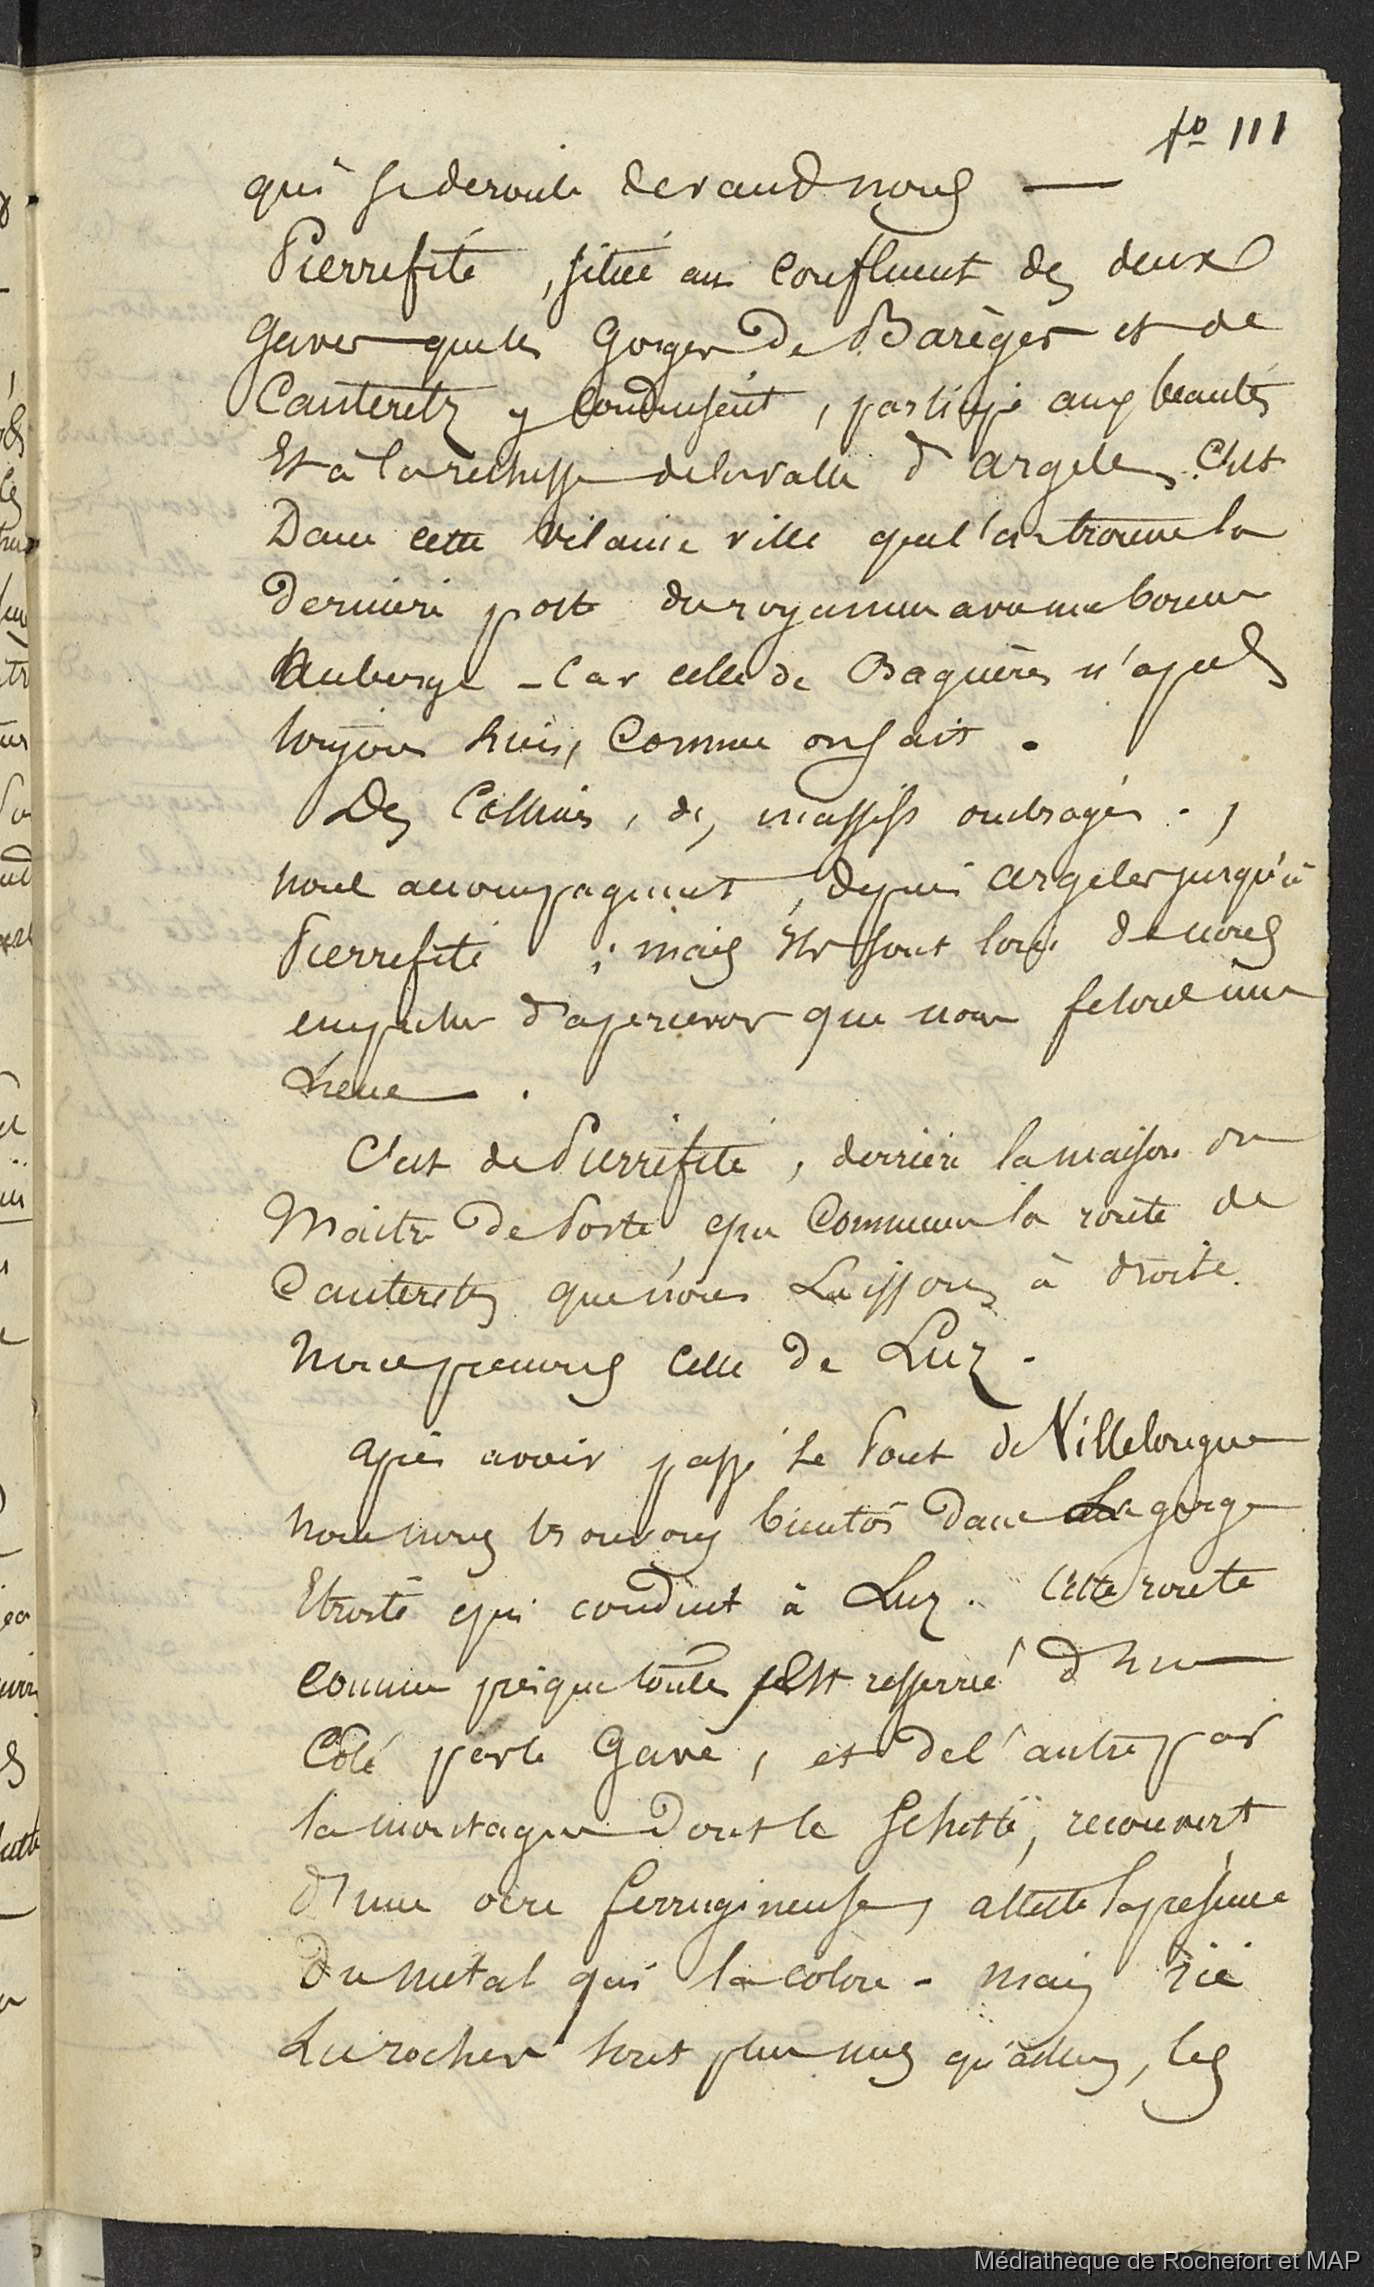 fo 111
qui se deroule devant nous —
Pierrefite, située au confluent des deux
Gaves que les Gorges de Barèges et de
Cauteretz y conduisent, participe aux beautés
Et à la richesse de la vallée d'argeles. C'est
Dans cette vilaine ville que l'on trouve la
Derniere poste du royaume avec une bonne
Auberge - Car celle de Bagnères n'a que
toujours huis, comme on sait.
Des Collines, des massifs ombragés.,
nous accompagnent, depuis argeles jusqu'à
Pierrefite ; mais ils sont loin de nous
empecher d'apercevoir que nous feslons une
Lieue.
C'est de Pierrefite, derriere la maison du
Maitre de Poste que commence la route de
Cauteretz que nous Laissons à droite.
Nous prenons celle de Luz.
après avoir passé le Pont de Villelongue
nous nous trouvons bientôt dans la gorge
Etroite qui conduit à Luz. Cette route
comme presque toutes est resserrée d'un
Côté par le Gave, et de l'autre par
la montagne dont le Schiste, recouvert
d'une ocre ferrugineuse, atteste la présence
Du métal qui la colore - mais ici
Les rochers sont plus nus qu'ailleurs, les
Médiathèque de Rochefort et MAP